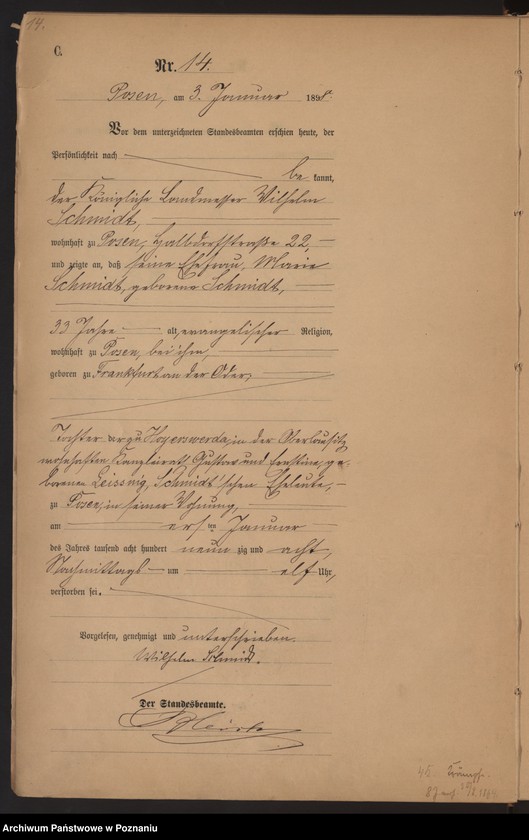 14.
C.
Nr. 14.
Posen, am 3. Januar 1898.
Vor dem unterzeichneten Standesbeamten erschien heute, der
Persönlichkeit nach
be kannt,
der Königliche Landmesser Wilhelm
Schmidt,
wohnhaft zu Posen, Halbdorfstraße 22,
und zeigte an, daß seine Ehefrau, Marie
Schmidt, geborene Schmidt,
33 Jahre alt, evangelischer Religion,
wohnhaft zu Posen, bei ihm,
geboren zu Frankfurt an der Oder
Tochter der zu Hoyerswerda, in der Oberlausitz
wohnhaften Kanzleirath Gustav und Ernstine, ge-
borenen Schmidt'schen Eheleute,
zu Posen, in seiner Wohnung,
am ersten Januar
des Jahres tausend acht hundert neun zig und acht,
Nachmittags um elf Uhr,
verstorben sei.
Vorgelesen, genehmigt und unterschrieben.
Wilhelm Schmidt.
Der Standesbeamte.
45
Archiwum Państwowe w Poznaniu